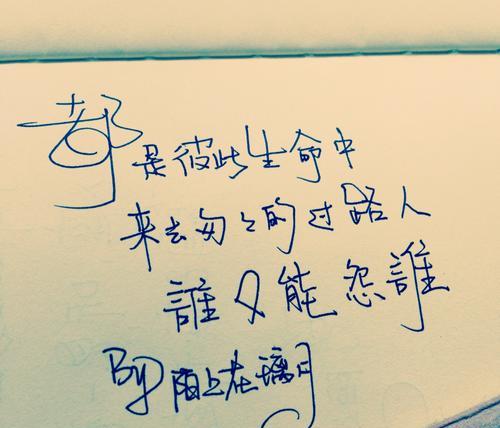 都是彼此生命中
来去匆々的过路人
誰又能怨誰
By 陌上在璃月